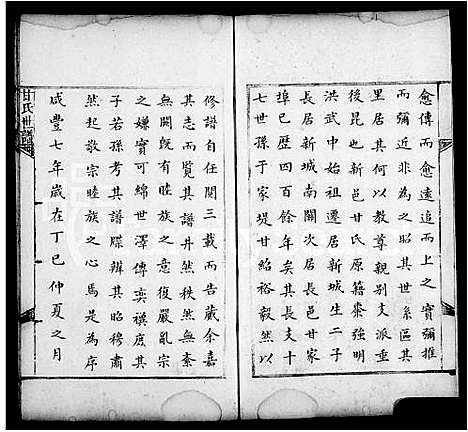 愈傳而愈遠追而上之實彌推
而彌近非為之昭其世系區其
里居其何以教尊別支派重
後昆也新邑甘氏原籍棗強明
洪武中始祖遷居新城生二子
長居新城南關次居長邑甘家
埠巳歷四百餘年矣其長支十
七世孫于家堤甘紹裕毅然以
修譜自任閱三載而告蕆余嘉
其志而覽其譜井然秩然無紊
無闕既有睦族之意復嚴亂宗
之嫌實可綿世澤傳奕禩庶其
子若孫考其譜牒辨其昭穆肅
然起敬宗睦族之心焉是為序
咸豐七年歲在丁巳仲夏之月
甘氏世譜